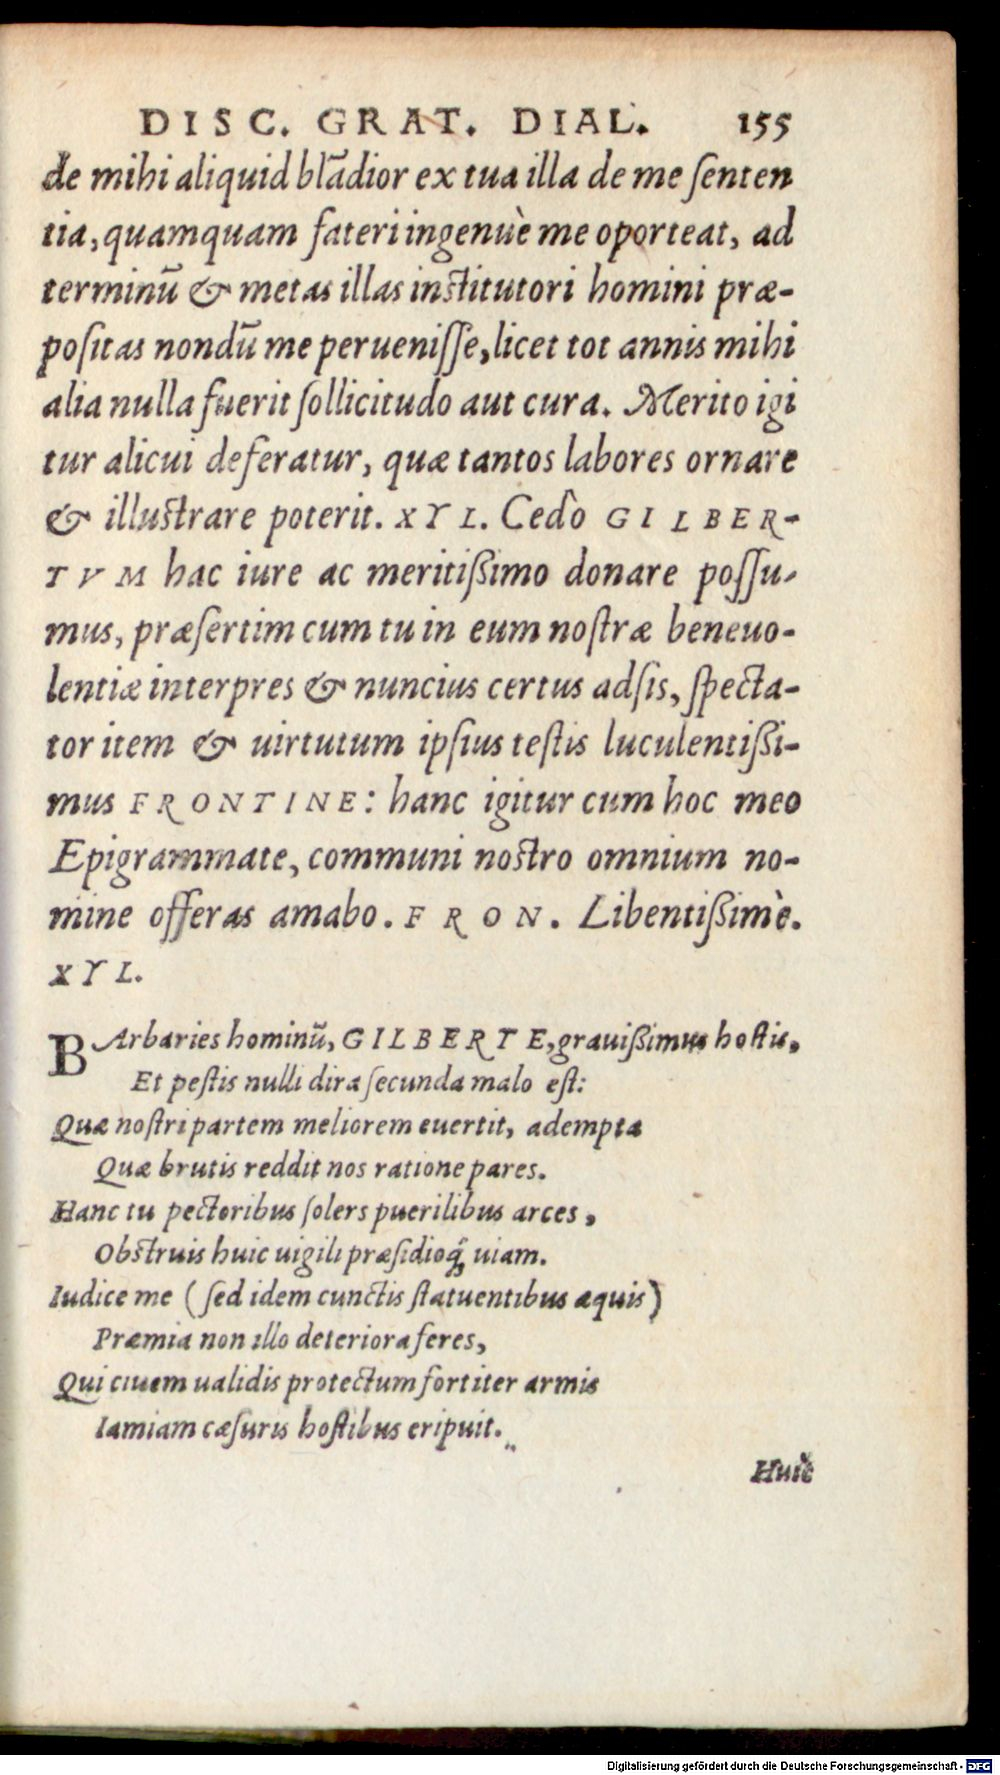 DISC. GRAT. DIAL. 155
de mihi aliquid blādior ex tua illa de me ſenten
tia, quamquam fateri ingenuè me oporteat, ad
terminū & metas illas inſtitutori homini præ-
poſitas nondū me perueniſſe, licet tot annis mihi
alia nulla fuerit ſollicitudo aut cura. Merito igi
tur alicui deferatur, quæ tantos labores ornare
& illuſtrare poterit. XYL. Cedo GILBER-
TVM hac iure ac meritißimo donare poſſu-
mus, præſertim cum tu in eum noſtræ beneuo-
lentiæ interpres & nuncius certus adſis, ſpecta-
tor item & uirtutum ipſius teſtis luculentißi-
mus FRONTINE: hanc igitur cum hoc meo
Epigrammate, communi noſtro omnium no-
mine offeras amabo. FRON. Libentißimè.
XYL.
BArbaries hominū, GILBERTE, grauißimus hoſtis,
Et peſtis nulli dira ſecunda malo eſt:
Quæ noſtri partem meliorem euertit, adempta
Quæ brutis reddit nos ratione pares.
Hanc tu pectoribus ſolers puerilibus arces,
Obſtruis huic uigili præſidioq́; uiam.
Iudice me (ſed idem cunctis ſtatuentibus æquis)
Præmia non illo deteriora feres,
Qui ciuem ualidis protectum fortiter armis
Iamiam cæſuris hoſtibus eripuit.
Huic
Digitalisierung gefördert durch die Deutsche Forschungsgemeinschaft - DFG